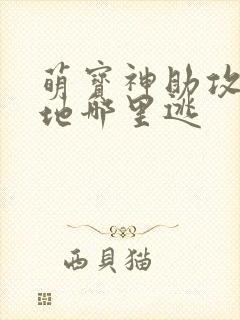 萌寶神助攻
地哪里逃
西貝猫